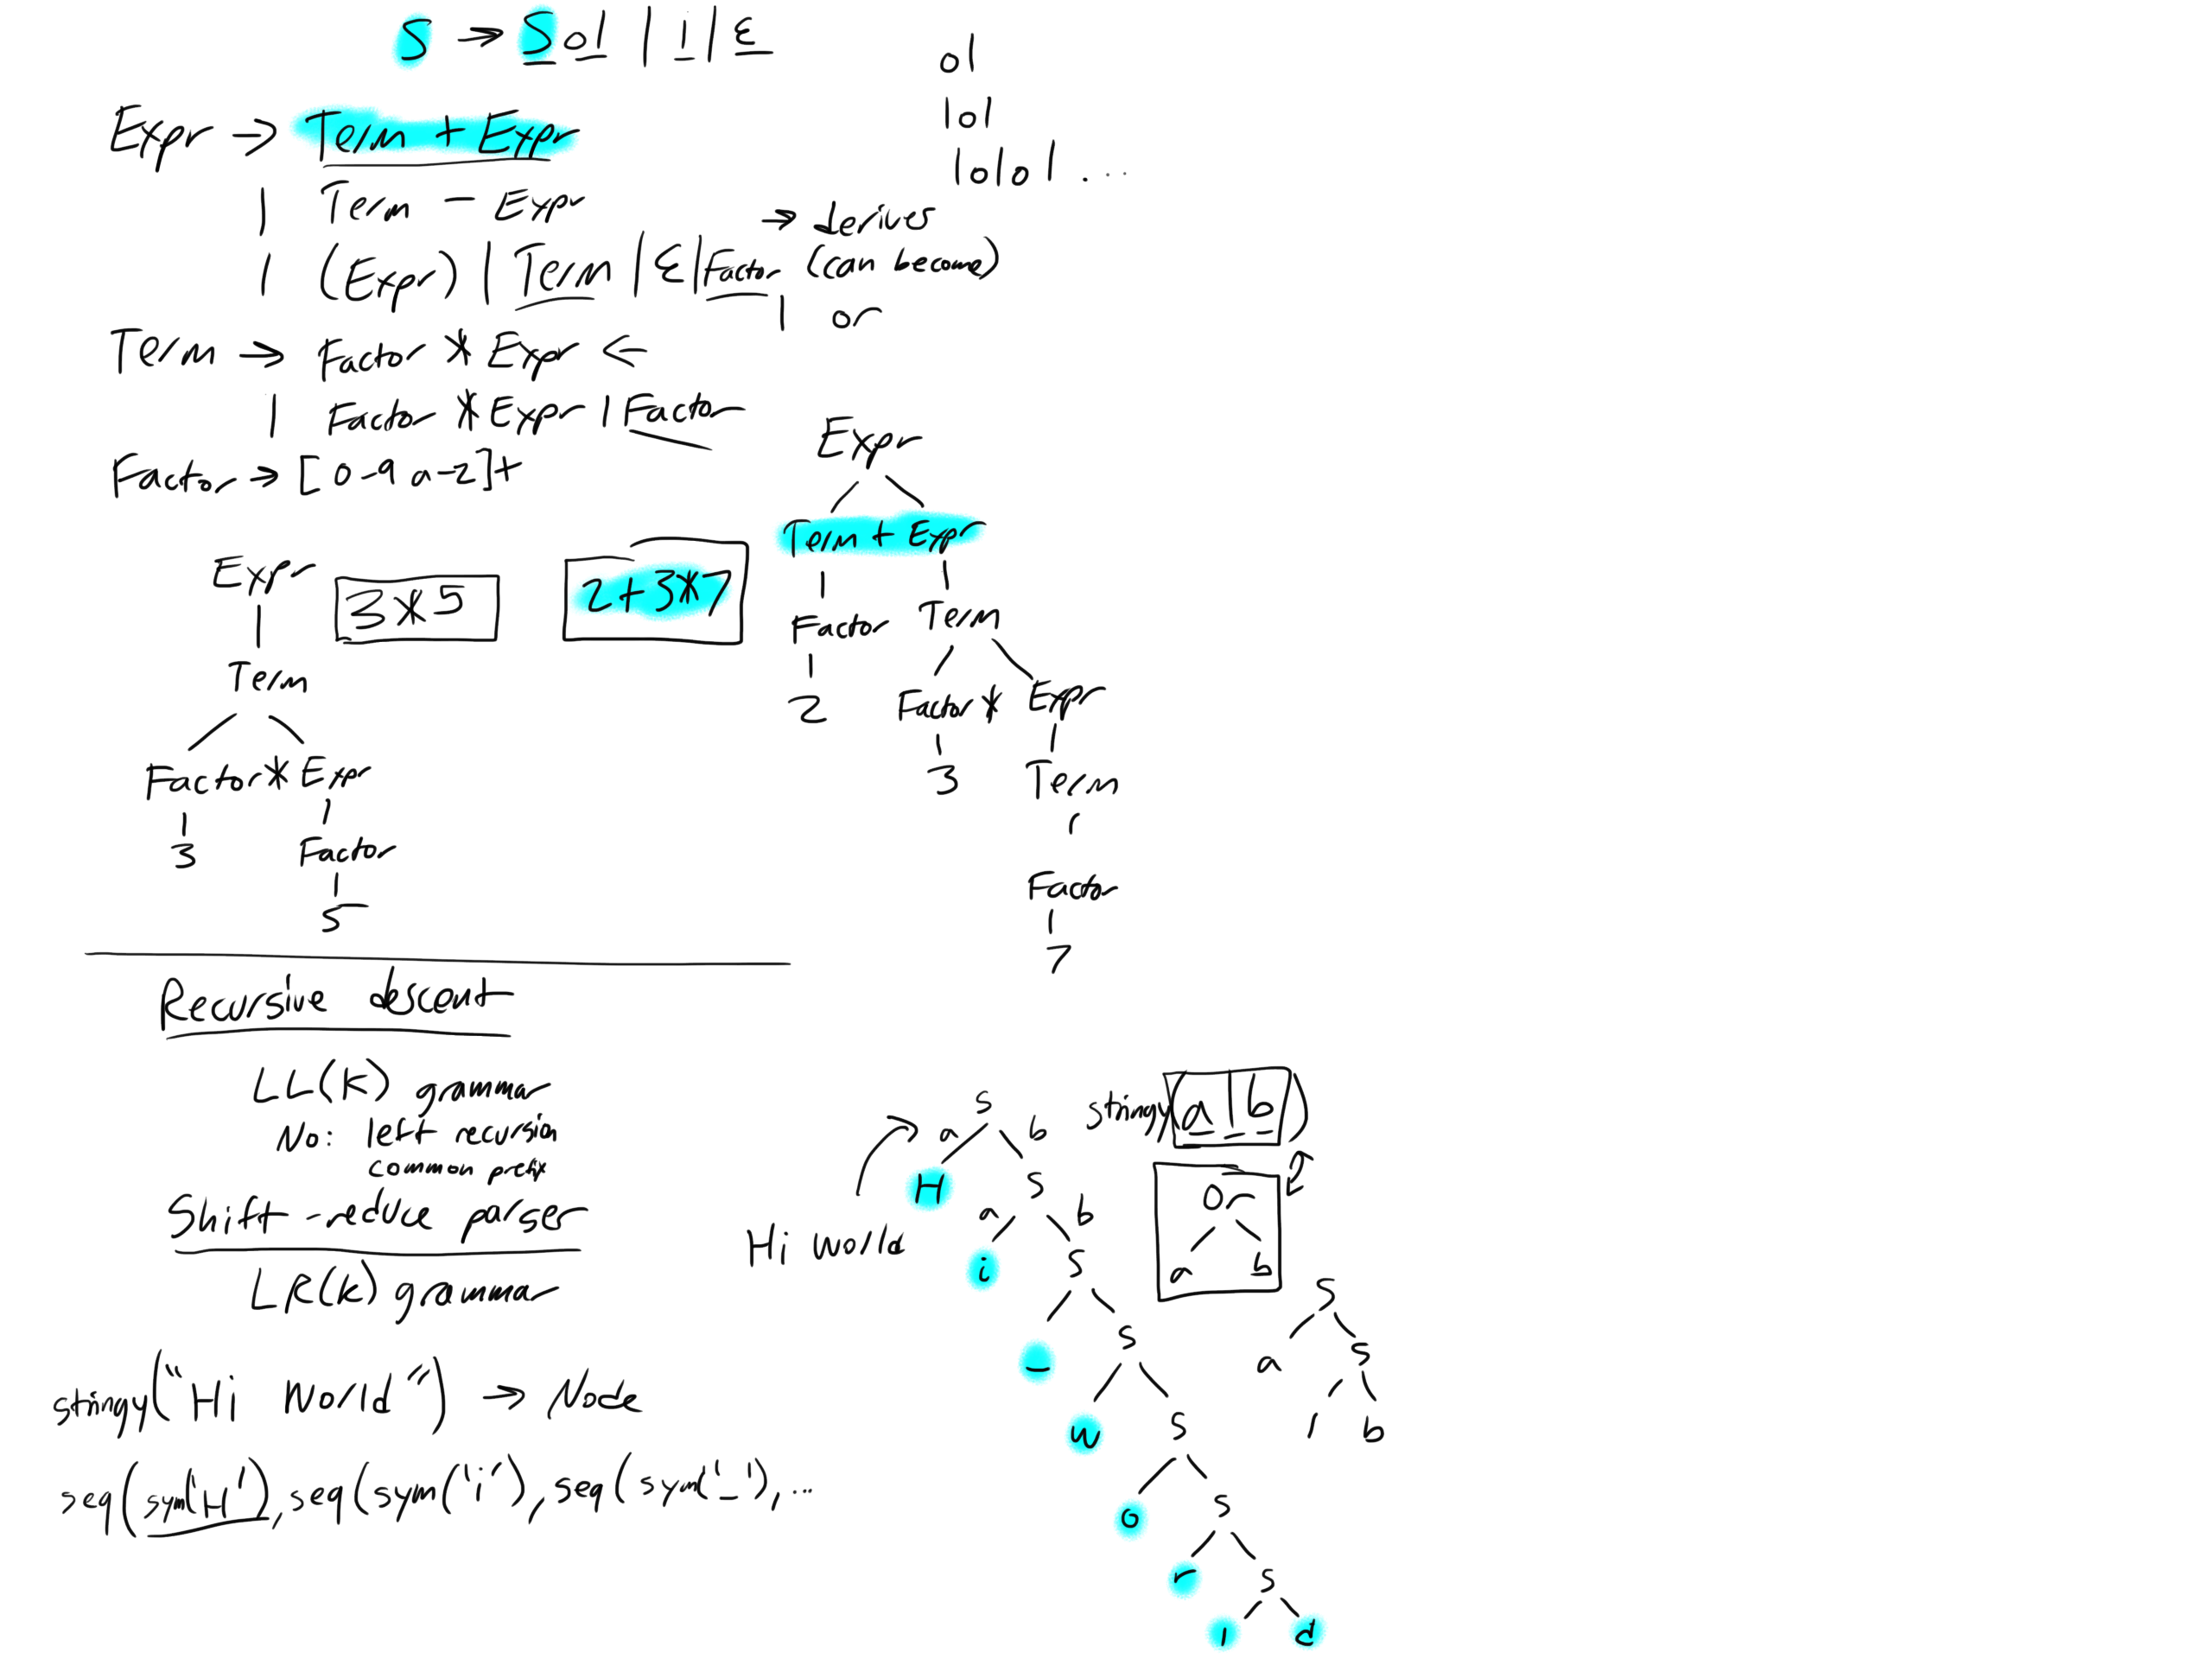 S → S o l | i | ε
ol
lol
lolol ...
Expr → Term + Expr
| Term - Expr
| (Expr) | Term | ε | Factor
→ derives
(can become)
| or
Term → Factor * Expr ←
| Factor * Expr | Factor
Factor → [0-9 a-z]+
Expr
3*5
Term
Factor * Expr
3
Factor
5
2+3*7
Expr
Term + Expr
Factor Term
2
Factor * Expr
3
Term
Factor
7
Recursive descent
LL(k) grammar
No: left recursion
common prefix
Shift-reduce parser
LR(k) grammar
stringy("Hi World") → Node
seq(sym('H'), seq(sym('i'), seq(sym('_'), ...
Hi world
S
a b
H S
a b
i S
_ S
w S
o S
r S
l d
stringy(a|b)
Or
a b
S
a S
| b